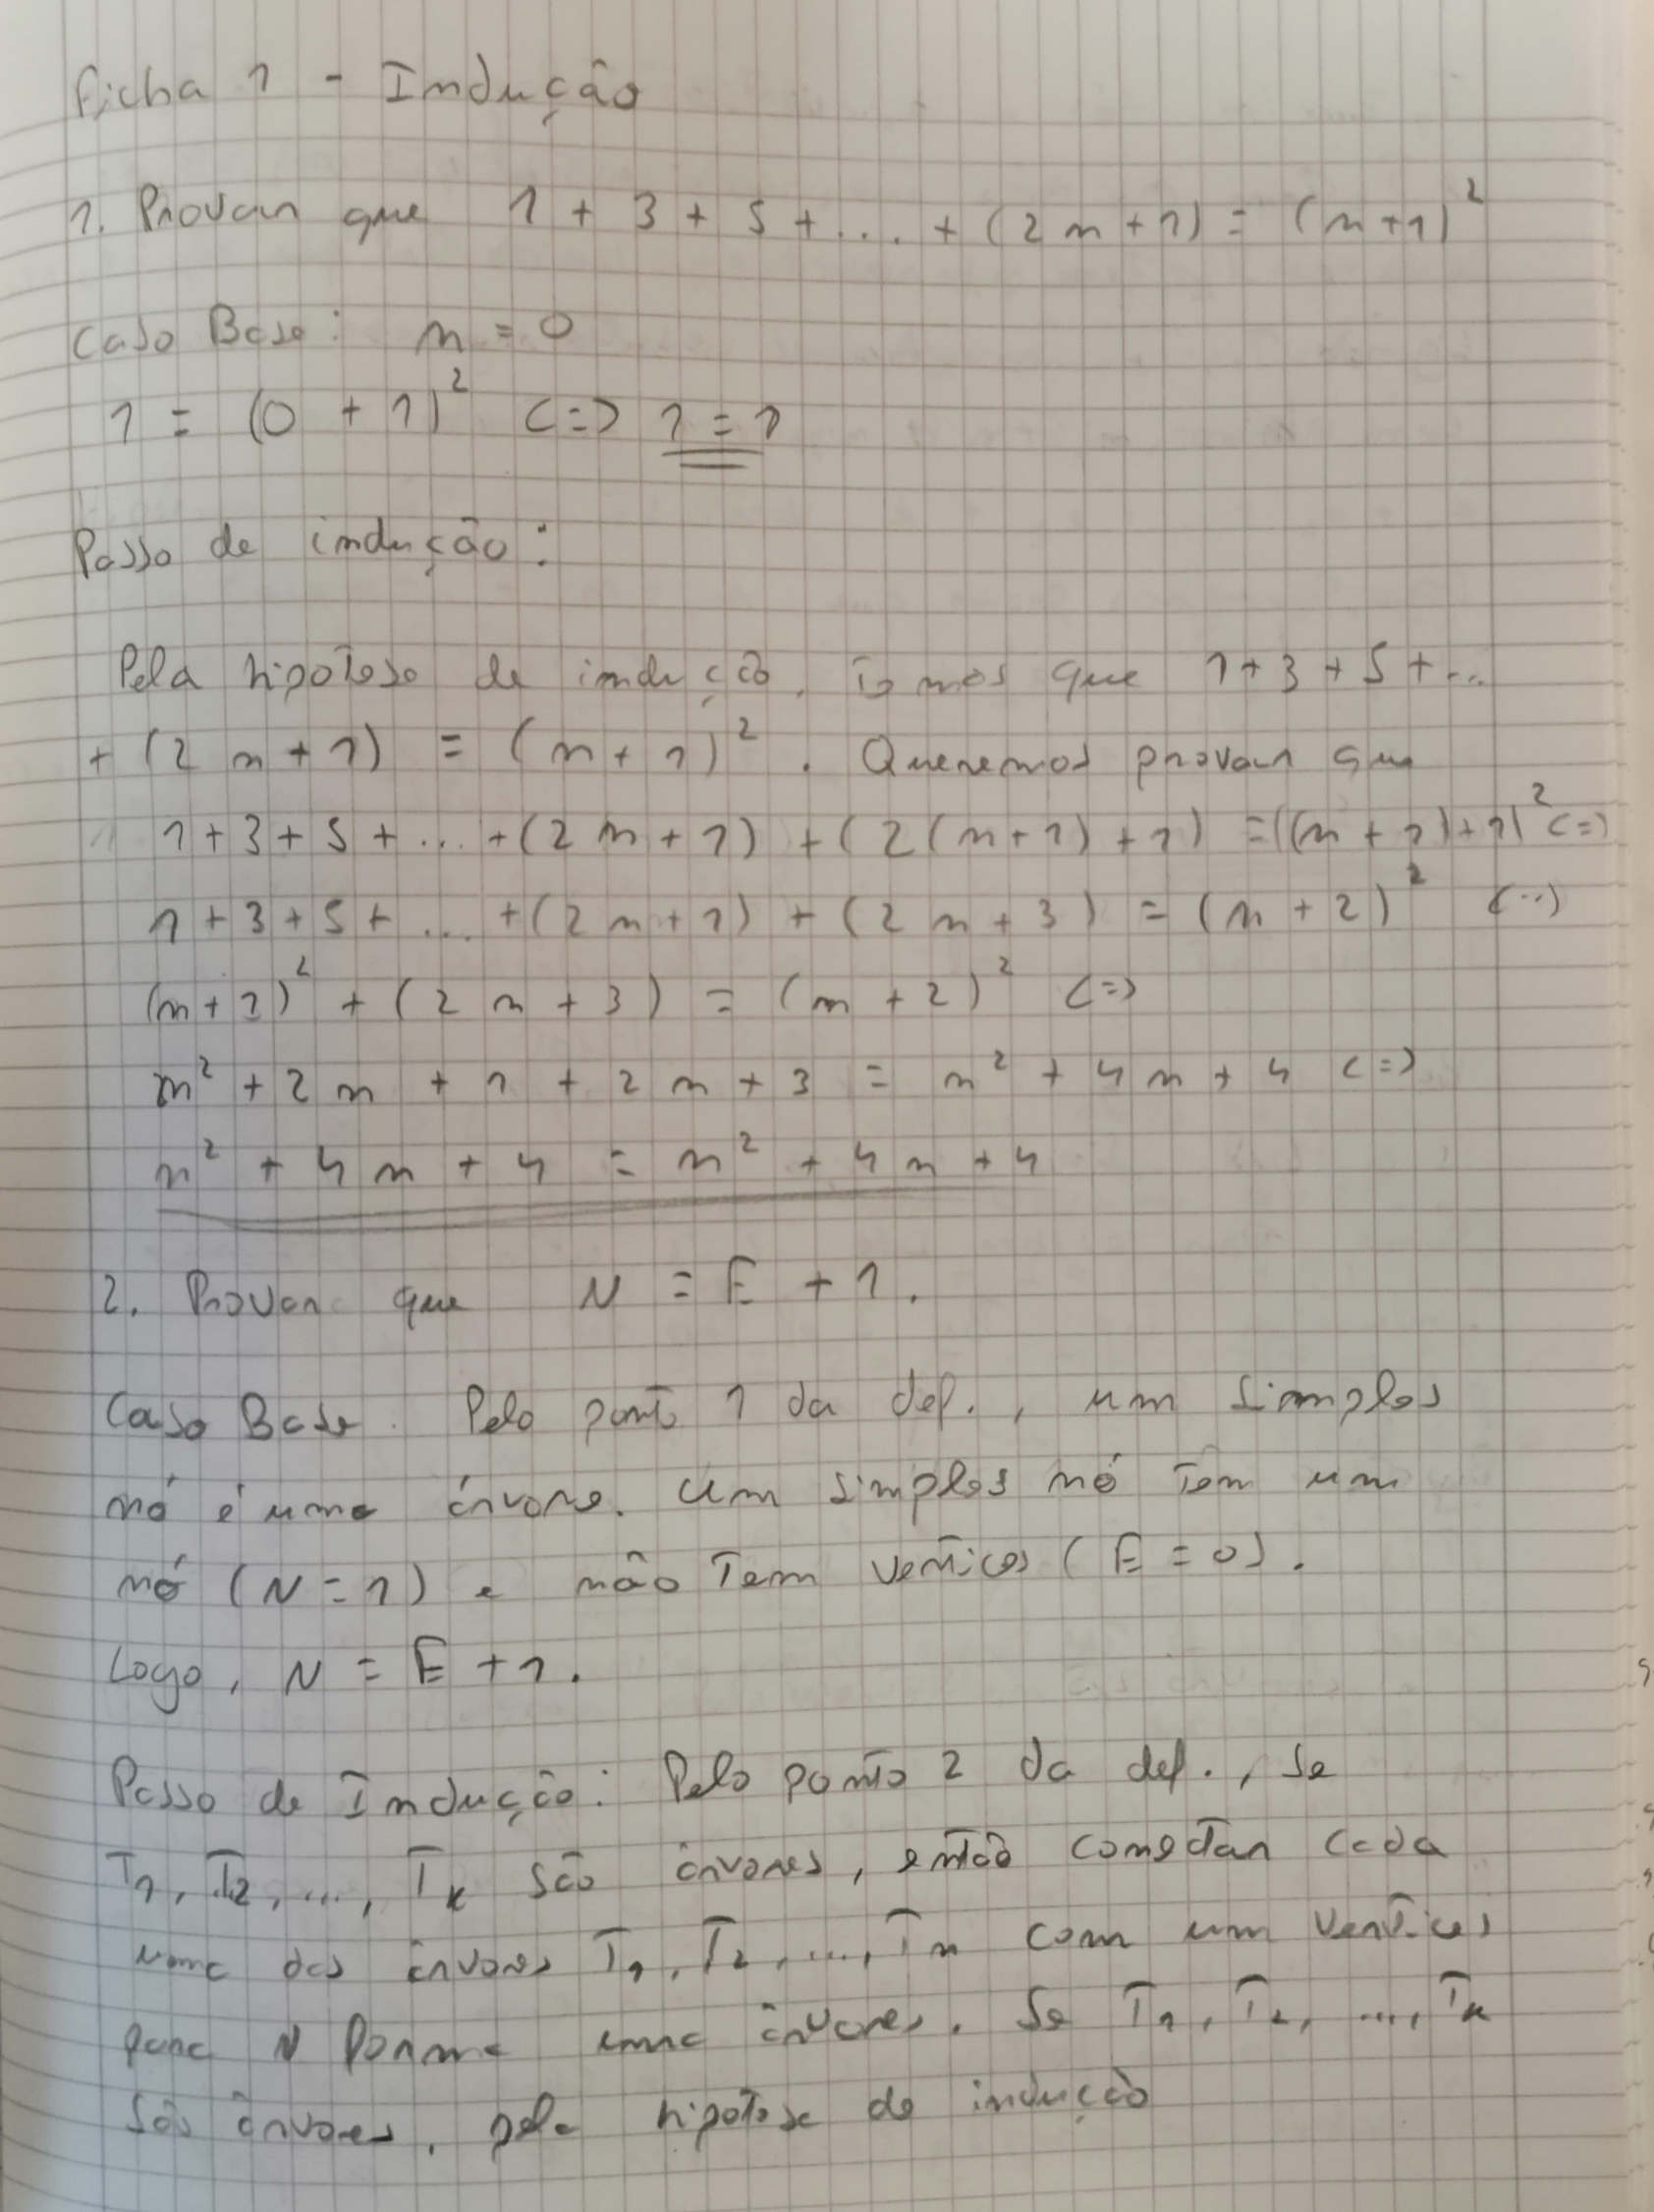 Ficha 1 - Indução
1. Provar que 1 + 3 + 5 + ... + (2n+1) = (n+1)²
Caso Base: n = 0
1 = (0 + 1)² <=> 1 = 1
Passo de indução:
Pela hipótese de indução, temos que 1+3+5+...
+ (2n+1) = (n+1)². Queremos provar que
1+3+5+...+(2n+1)+(2(n+1)+1) = ((n+1)+1)² <=>
1+3+5+...+(2n+1)+(2n+3) = (n+2)² <=>
(n+1)² + (2n+3) = (n+2)² <=>
n² + 2n + 1 + 2n + 3 = n² + 4n + 4 <=>
n² + 4n + 4 = n² + 4n + 4
2. Provar que N = E + 1.
Caso Base: Pelo ponto 1 da def., um simples
nó é uma árvore. Um simples nó tem um
nó (N=1) e não tem vertices (E=0).
Logo, N = E + 1.
Passo de Indução: Pelo ponto 2 da def., se
T₁, T₂, ..., Tₖ são árvores, então conectar cada
uma das árvores T₁, T₂, ..., Tₖ com um vertices
para N forma uma árvores. Se T₁, T₂, ..., Tₖ
são árvores, pela hipótese de indução